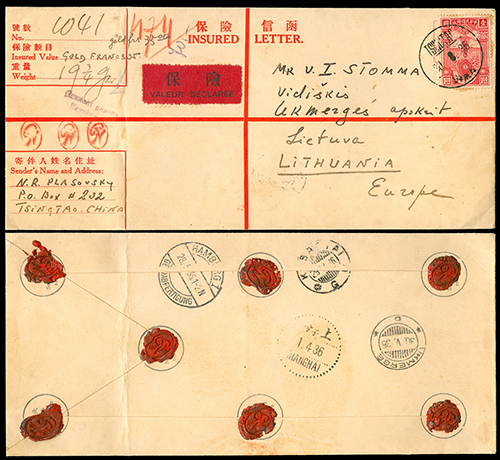 號數
No.
1041
保險數目
Insured Value GOLD FRANCS 35.
gold frs 35.00
重量
Weight
保險 信函
INSURED LETTER.
保險
VALEUR DÉCLARÉE
寄件人姓名住址
Sender's Name and Address:
N.R. PLASOVSKY
P.O. Box # 232
TSINGTAO. CHINA
MR V. I. STOMMA
Vidiškis
Ukmergės apskrit
Lietuva
LITHUANIA
Europe
TSINGTAO
HAMBURG 1
上海
1.4.36
SHANGHAI
UKMERGĖ
30.V.36